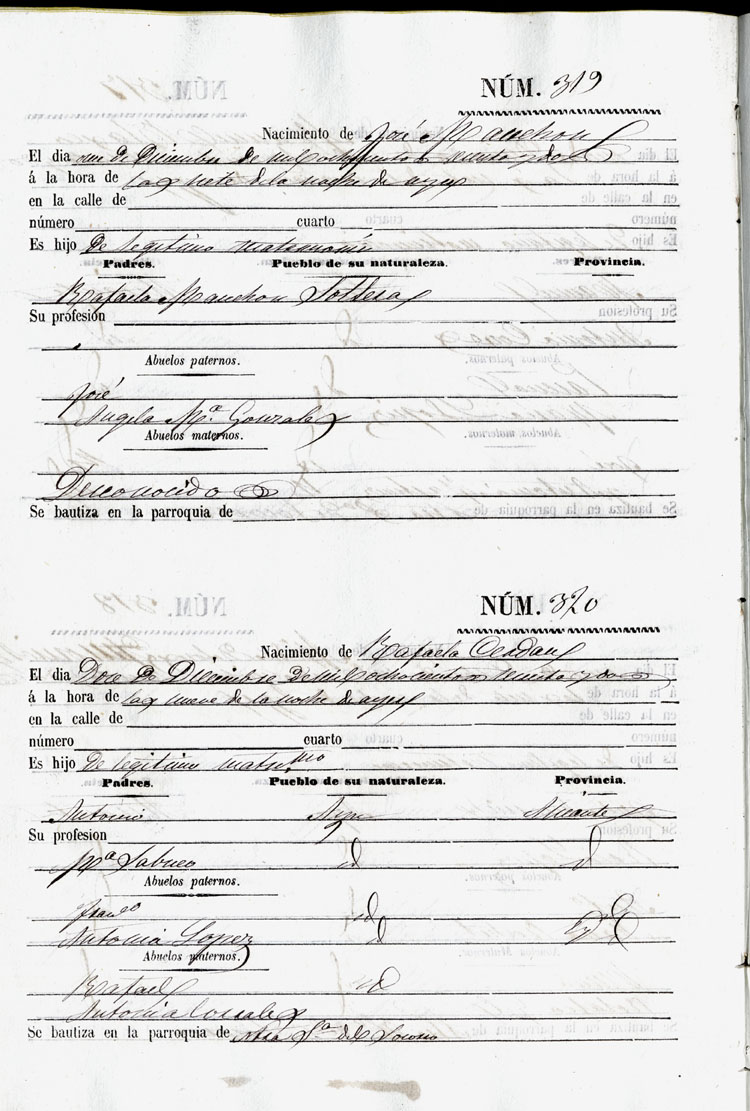 NÚM. 319
Nacimiento de José Manchon
El dia once de Diciembre de mil ochocientos sesenta y dos
á la hora de las siete de la noche de ayer
en la calle de
número cuarto
Es hijo de legitimo matrimonio
Padres. Pueblo de su naturaleza. Provincia.
Rafaela Manchon
Su profesión
Abuelos paternos.
José
Angela Mª. Gonzalez
Abuelos maternos.
Desconocido
Se bautiza en la parroquia de
NÚM. 320
Nacimiento de Rafaela Cerdan
El dia Doce de Diciembre de mil ochocientos sesenta y dos
á la hora de las nueve de la noche de ayer
en la calle de
número cuarto
Es hijo de legitimo matrimo
Padres. Pueblo de su naturaleza. Provincia.
Antonio Aspe Alicante
Su profesion
Mª Sabuco id id
Abuelos paternos.
Franco id
Antonia Lopez id
Abuelos maternos.
Rafael id
Antonia
Se bautiza en la parroquia de Ntra Sª del Socorro